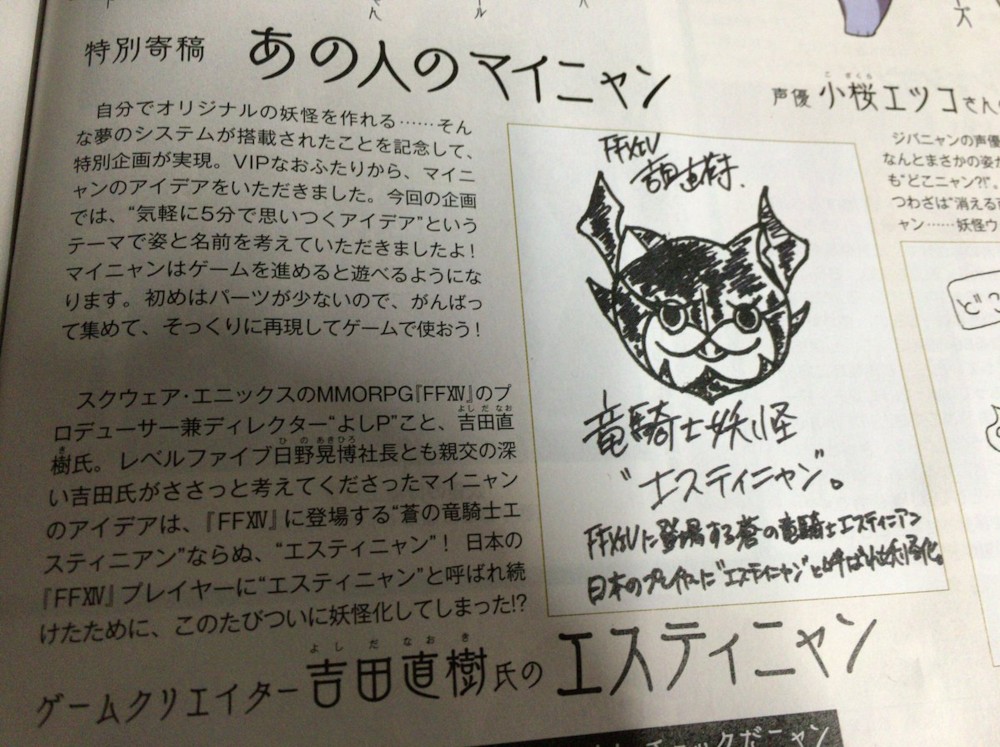 特別寄稿 あの人のマイニャン
自分でオリジナルの妖怪を作れる……そん
な夢のシステムが搭載されたことを記念して、
特別企画が実現。VIPなおふたりから、マイニ
ャンのアイデアをいただきました。今回の企画
では、“気軽に5分で思いつくアイデア”という
テーマで姿と名前を考えていただきましたよ!
マイニャンはゲームを進めると遊べるようにな
ります。初めはパーツが少ないので、がんばっ
て集めて、そっくりに再現してゲームで使おう!
スクウェア・エニックスのMMORPG『FFXIV』のプ
よしだなお
ロデューサー兼ディレクター“よしP”こと、吉田直
き ひのあきひろ
樹氏。レベルファイブ日野晃博社長とも親交の深
い吉田氏がささっと考えてくださったマイニャン
のアイデアは、『FFXIV』に登場する“蒼の竜騎士エ
スティニアン”ならぬ、“エスティニャン”! 日本の
『FFXIV』プレイヤーに“エスティニャン”と呼ばれ続
けたために、このたびついに妖怪化してしまった!?
FFXIV
吉田直樹.
竜騎士妖怪
“エスティニャン”。
FFXIVに登場する蒼の竜騎士エスティニアン
日本のプレイヤーに“エスティニャン”と呼ばれ妖怪化。
よしだなおき
ゲームクリエイター吉田直樹氏の エスティニャン
こざくら
声優 小桜エツコさん
ジバニャンの声優
なんとまさかの姿が
も“どこニャン?!”。
つわざは“消える
ャン……妖怪ウ
どこ